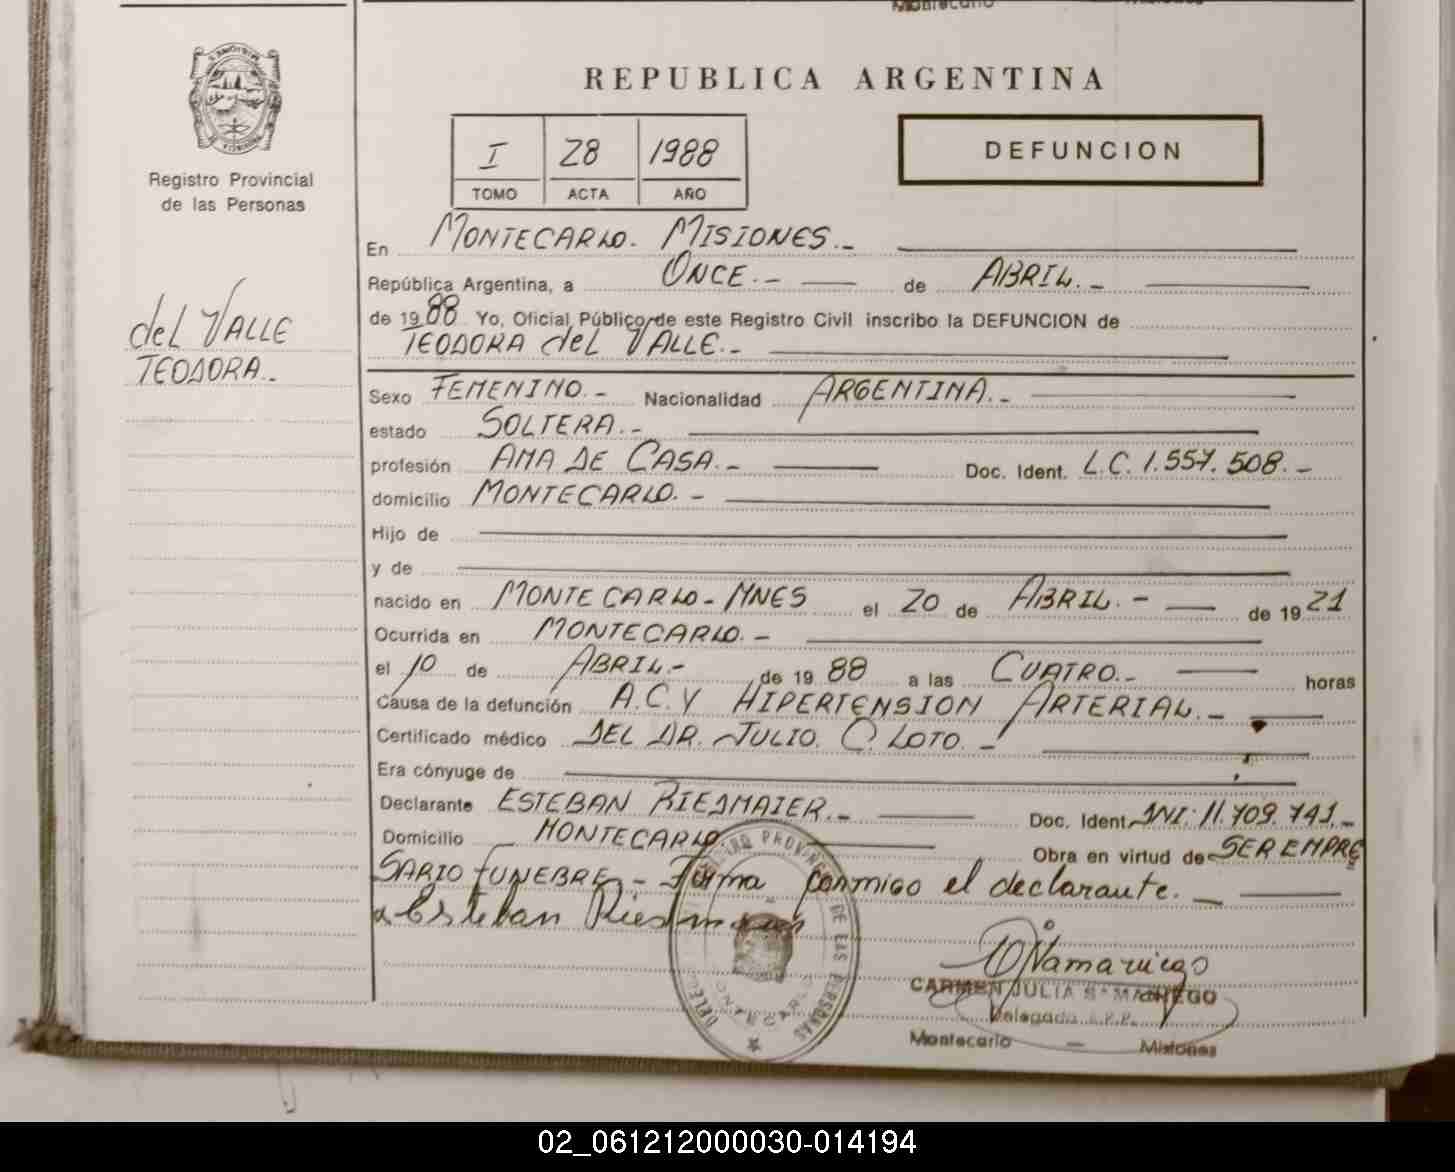 REPUBLICA ARGENTINA
I 28 1988
TOMO ACTA AÑO
DEFUNCION
Registro Provincial
de las Personas
del VALLE
TEODORA.-
En MONTECARLO. MISIONES.-
República Argentina, a ONCE.- de ABRIL.-
de 1988 Yo, Oficial Público de este Registro Civil inscribo la DEFUNCION de
TEODORA del VALLE.-
Sexo FEMENINO.- Nacionalidad ARGENTINA.-
estado SOLTERA.-
profesión AMA DE CASA.- Doc. Ident. L.C. 1.557.508.-
domicilio MONTECARLO.-
Hijo de
y de
nacido en MONTECARLO-MNES el 20 de ABRIL.- de 1921
Ocurrida en MONTECARLO.-
el 10 de ABRIL.- de 1988 a las CUATRO.- horas
Causa de la defunción A.C. Y HIPERTENSION ARTERIAL.-
Certificado médico DEL DR. JULIO. C. LOTO.-
Era cónyuge de
Declarante ESTEBAN RIEDMAIER.- Doc. Ident. DNI: 11.709.741.-
Domicilio MONTECARLO Obra en virtud de SER EMPRE
SARIO FUNEBRE.- Firma conmigo el declarante.-
Esteban
CARMEN JULIA
Delegada
Montecarlo - Misiones
02_061212000030-014194